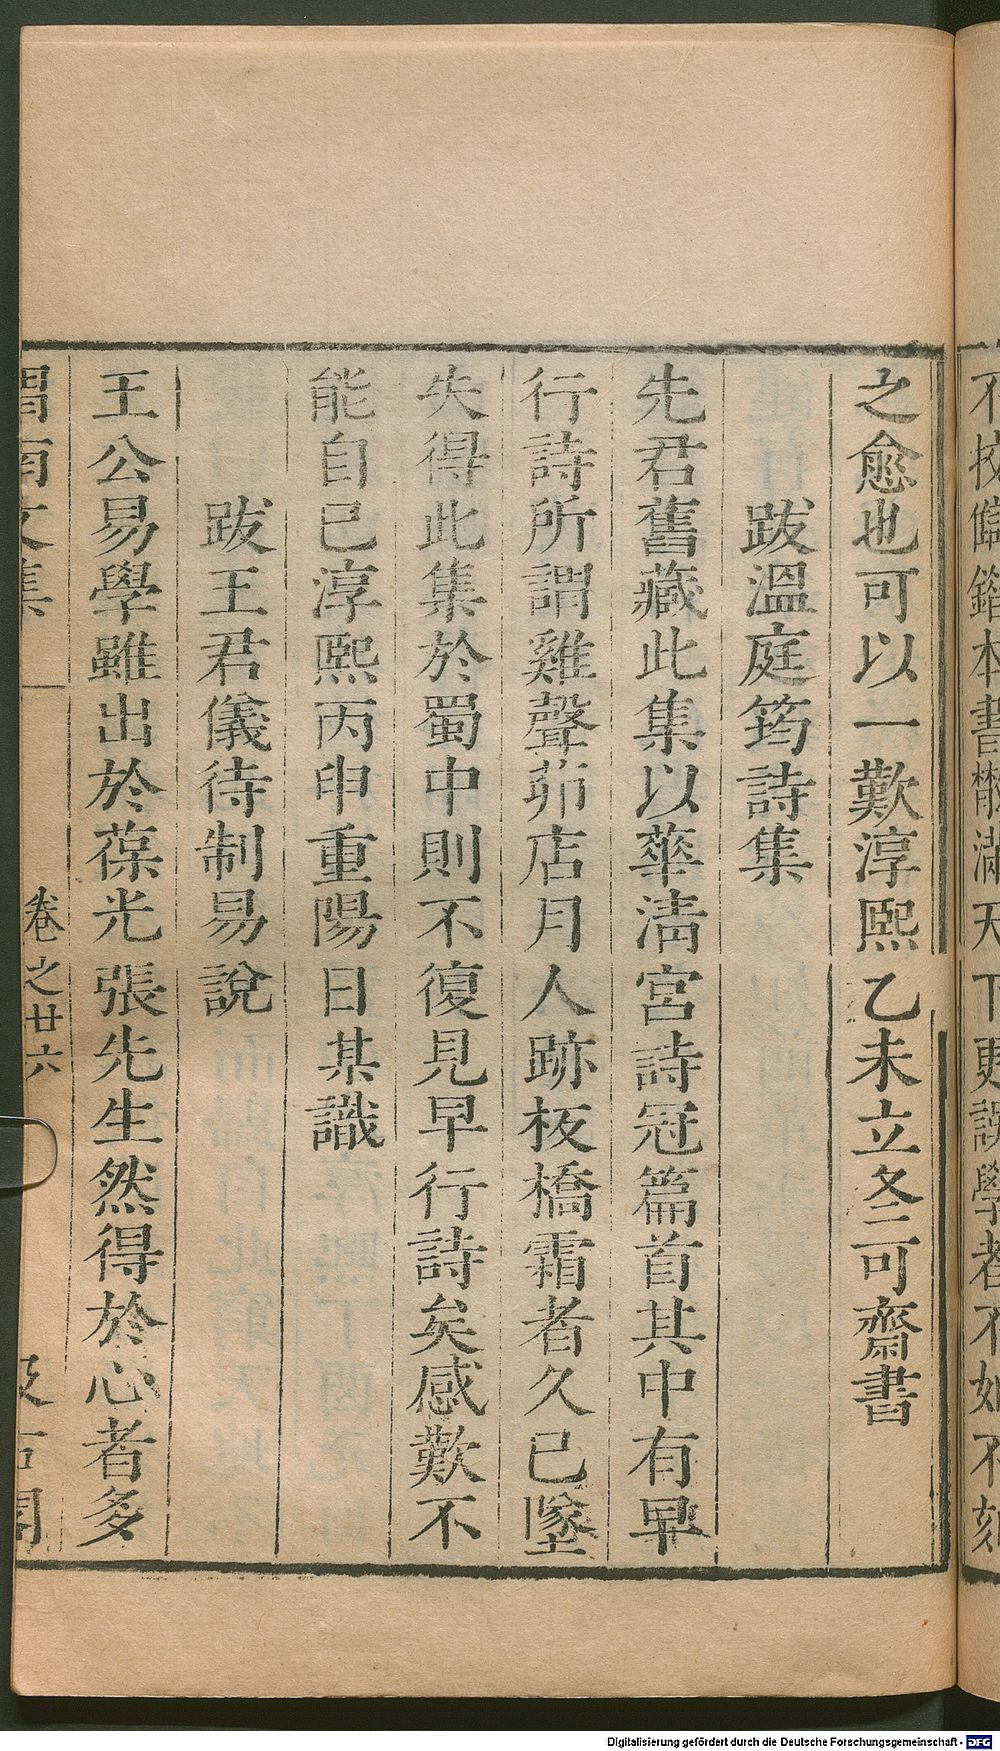 不挍讎錯本書散滿天下更誤學者不如不刻
之愈也可以一歎淳熙乙未立冬可齋書
跋溫庭筠詩集
先君舊藏此集以華淸宮詩冠篇首其中有早
行詩所謂雞聲茆店月人跡板橋霜者久已墜
失得此集於蜀中則不復見早行詩矣感歎不
能自已淳熙丙申重陽日某識
跋王君儀待制易說
王公易學雖出於葆光張先生然得於心者多
渭南文集
卷之廿六
汲古閣
Digitalisierung gefördert durch die Deutsche Forschungsgemeinschaft - DFG